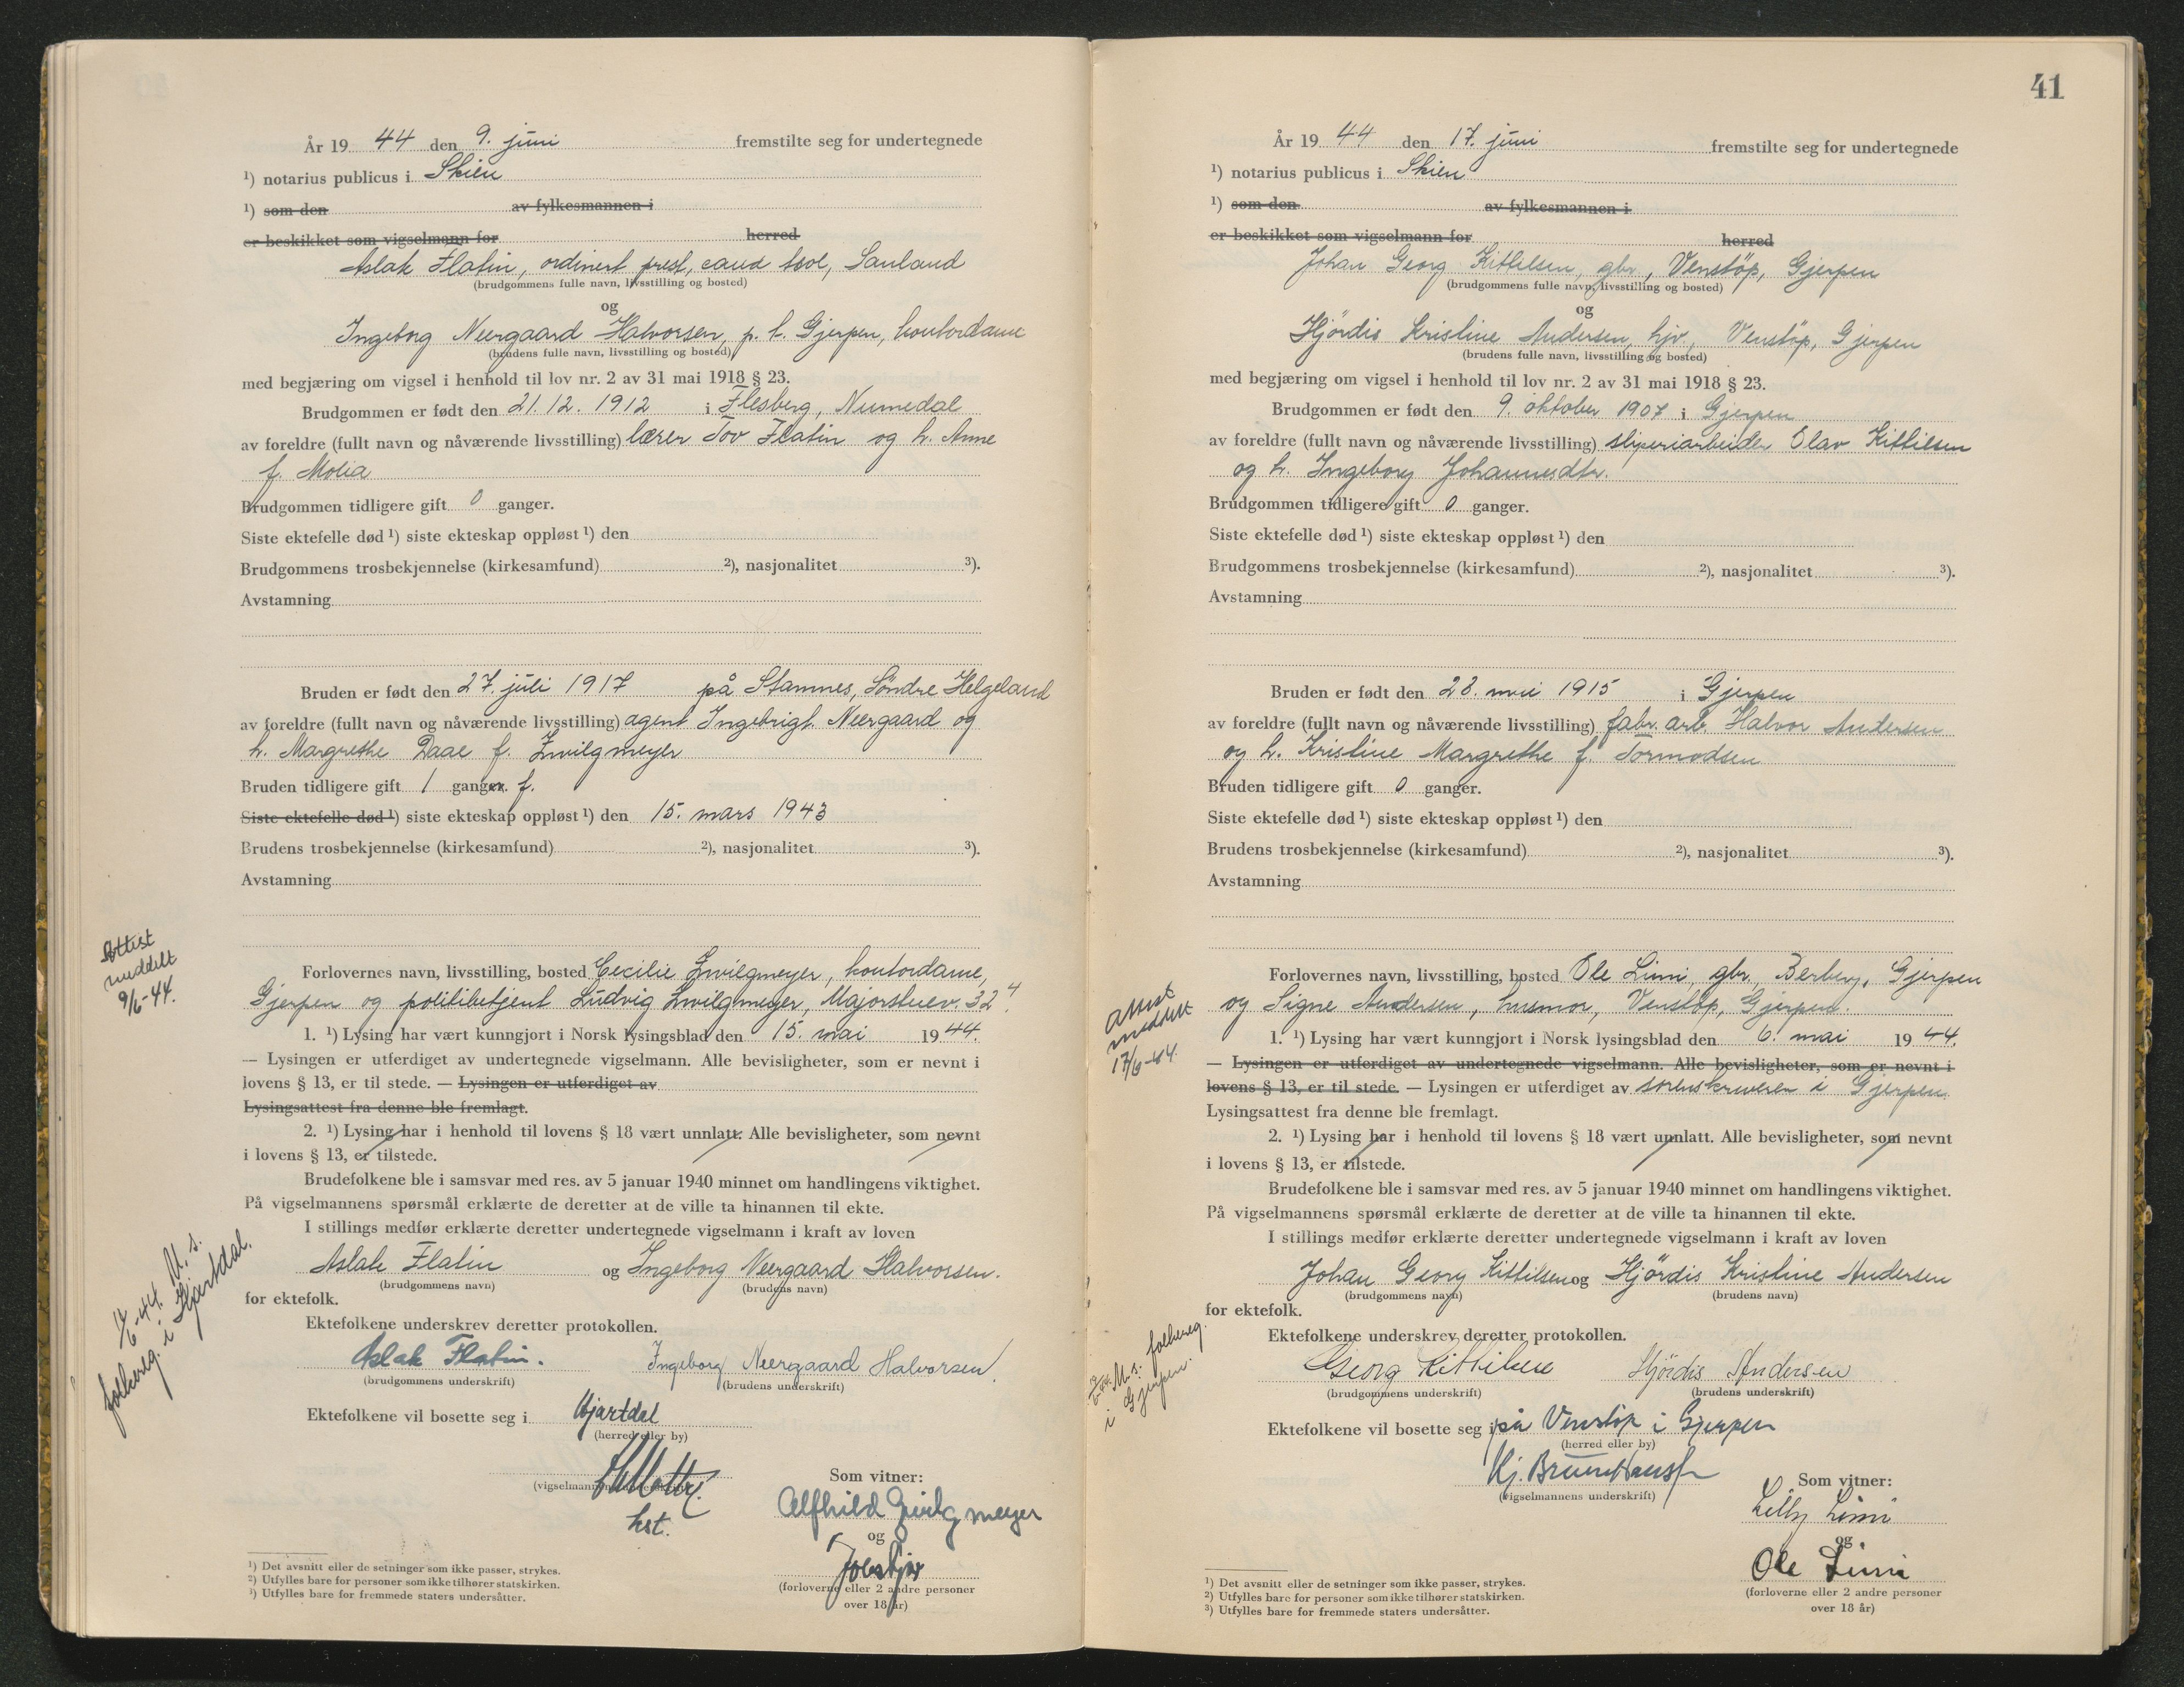 År 19 44 den 9. juni fremstilte seg for undertegnede
¹) notarius publicus i Skien
¹) som den av fylkesmannen i
er beskikket som vigselmann for herred
Aslak Flatin, ordinert prest, cand teol, Sauland
(brudgommens fulle navn, livsstilling og bosted)
og
Ingeborg Neergaard Halvorsen, p. t. Gjerpen, kontordame
(brudens fulle navn, livsstilling og bosted)
med begjæring om vigsel i henhold til lov nr. 2 av 31 mai 1918 § 23.
Brudgommen er født den 21. 12. 1912 i Flesberg, Numedal
av foreldre (fullt navn og nåværende livsstilling) lærer Tov Flatin og h. Anne
f. Molia
Brudgommen tidligere gift 0 ganger.
Siste ektefelle død ¹) siste ekteskap oppløst ¹) den
Brudgommens trosbekjennelse (kirkesamfund) ²), nasjonalitet ³).
Avstamning
Bruden er født den 27. juli 1917 på Stamnes, Söndre Helgeland
av foreldre (fullt navn og nåværende livsstilling) agent Ingebrigt Neergaard og
h. Margrethe Daae f. Zwilgmeyer
Bruden tidligere gift 1 ganger. f.
Siste ektefelle død ¹) siste ekteskap oppløst ¹) den 15. mars 1943
Brudens trosbekjennelse (kirkesamfund) ²), nasjonalitet ³).
Avstamning
Attest
meddelt
9/6-44.
Forlovernes navn, livsstilling, bosted Cecilie Zwilgmeyer, kontordame,
Gjerpen og politibetjent Ludvig Zwilgmeyer, Majorstuev. 32⁴.
1. ¹) Lysing har vært kunngjort i Norsk lysingsblad den 15. mai 1944.
— Lysingen er utferdiget av undertegnede vigselmann. Alle bevisligheter, som er nevnt i
lovens § 13, er til stede. — Lysingen er utferdiget av
Lysingsattest fra denne ble fremlagt.
2. ¹) Lysing har i henhold til lovens § 18 vært unnlatt. Alle bevisligheter, som nevnt
i lovens § 13, er tilstede.
Brudefolkene ble i samsvar med res. av 5 januar 1940 minnet om handlingens viktighet.
På vigselmannens spørsmål erklærte de deretter at de ville ta hinannen til ekte.
I stillings medfør erklærte deretter undertegnede vigselmann i kraft av loven
Aslak Flatin og Ingeborg Neergaard Halvorsen.
(brudgommens navn) (brudens navn)
for ektefolk.
-44. M. s.
folkereg. i Hjartdal.
Ektefolkene underskrev deretter protokollen.
Aslak Flatin. Ingeborg Neergaard Halvorsen.
(brudgommens underskrift) (brudens underskrift)
Ektefolkene vil bosette seg i Hjartdal
(herred eller by)
(vigselmannens underskrift)
Som vitner:
Alfhild Zwilgmeyer
og
(forloverne eller 2 andre personer
over 18 år)
¹) Det avsnitt eller de setninger som ikke passer, strykes.
²) Utfylles bare for personer som ikke tilhører statskirken.
³) Utfylles bare for fremmede staters undersåtter.
41
År 19 44 den 17. juni fremstilte seg for undertegnede
¹) notarius publicus i Skien
¹) som den av fylkesmannen i
er beskikket som vigselmann for herred
Johan Georg Kittilsen, gbr., Venstöp, Gjerpen
(brudgommens fulle navn, livsstilling og bosted)
og
Hjördis Kristine Andersen, hjv., Venstöp, Gjerpen
(brudens fulle navn, livsstilling og bosted)
med begjæring om vigsel i henhold til lov nr. 2 av 31 mai 1918 § 23.
Brudgommen er født den 9. oktober 1907 i Gjerpen
av foreldre (fullt navn og nåværende livsstilling) sliperiarbeider Olav Kittilsen
og h. Ingeborg Johannesdtr.
Brudgommen tidligere gift 0 ganger.
Siste ektefelle død ¹) siste ekteskap oppløst ¹) den
Brudgommens trosbekjennelse (kirkesamfund) ²), nasjonalitet ³).
Avstamning
Bruden er født den 23. mai 1915 i Gjerpen
av foreldre (fullt navn og nåværende livsstilling) fabr. arb. Halvor Andersen
og h. Kristine Margrethe f. Tormodsen
Bruden tidligere gift 0 ganger.
Siste ektefelle død ¹) siste ekteskap oppløst ¹) den
Brudens trosbekjennelse (kirkesamfund) ²), nasjonalitet ³).
Avstamning
attest
meddelt
17/6-44.
Forlovernes navn, livsstilling, bosted Ole Limi, gbr., Berberg, Gjerpen
og Signe Andersen, husmor, Venstöp, Gjerpen.
1. ¹) Lysing har vært kunngjort i Norsk lysingsblad den 6. mai 1944.
— Lysingen er utferdiget av undertegnede vigselmann. Alle bevisligheter, som er nevnt i
lovens § 13, er til stede. — Lysingen er utferdiget av sorenskriveren i Gjerpen.
Lysingsattest fra denne ble fremlagt.
2. ¹) Lysing har i henhold til lovens § 18 vært unnlatt. Alle bevisligheter, som nevnt
i lovens § 13, er tilstede.
Brudefolkene ble i samsvar med res. av 5 januar 1940 minnet om handlingens viktighet.
På vigselmannens spørsmål erklærte de deretter at de ville ta hinannen til ekte.
I stillings medfør erklærte deretter undertegnede vigselmann i kraft av loven
Johan Georg Kittilsen og Hjördis Kristine Andersen
(brudgommens navn) (brudens navn)
for ektefolk.
M. s. folkereg.
i Gjerpen.
Ektefolkene underskrev deretter protokollen.
Georg Kittilsen Hjördis Andersen
(brudgommens underskrift) (brudens underskrift)
Ektefolkene vil bosette seg i på Venstöp i Gjerpen
(herred eller by)
(vigselmannens underskrift)
Som vitner:
Lilly Limi
og
Ole Limi
(forloverne eller 2 andre personer
over 18 år)
¹) Det avsnitt eller de setninger som ikke passer, strykes.
²) Utfylles bare for personer som ikke tilhører statskirken.
³) Utfylles bare for fremmede staters undersåtter.